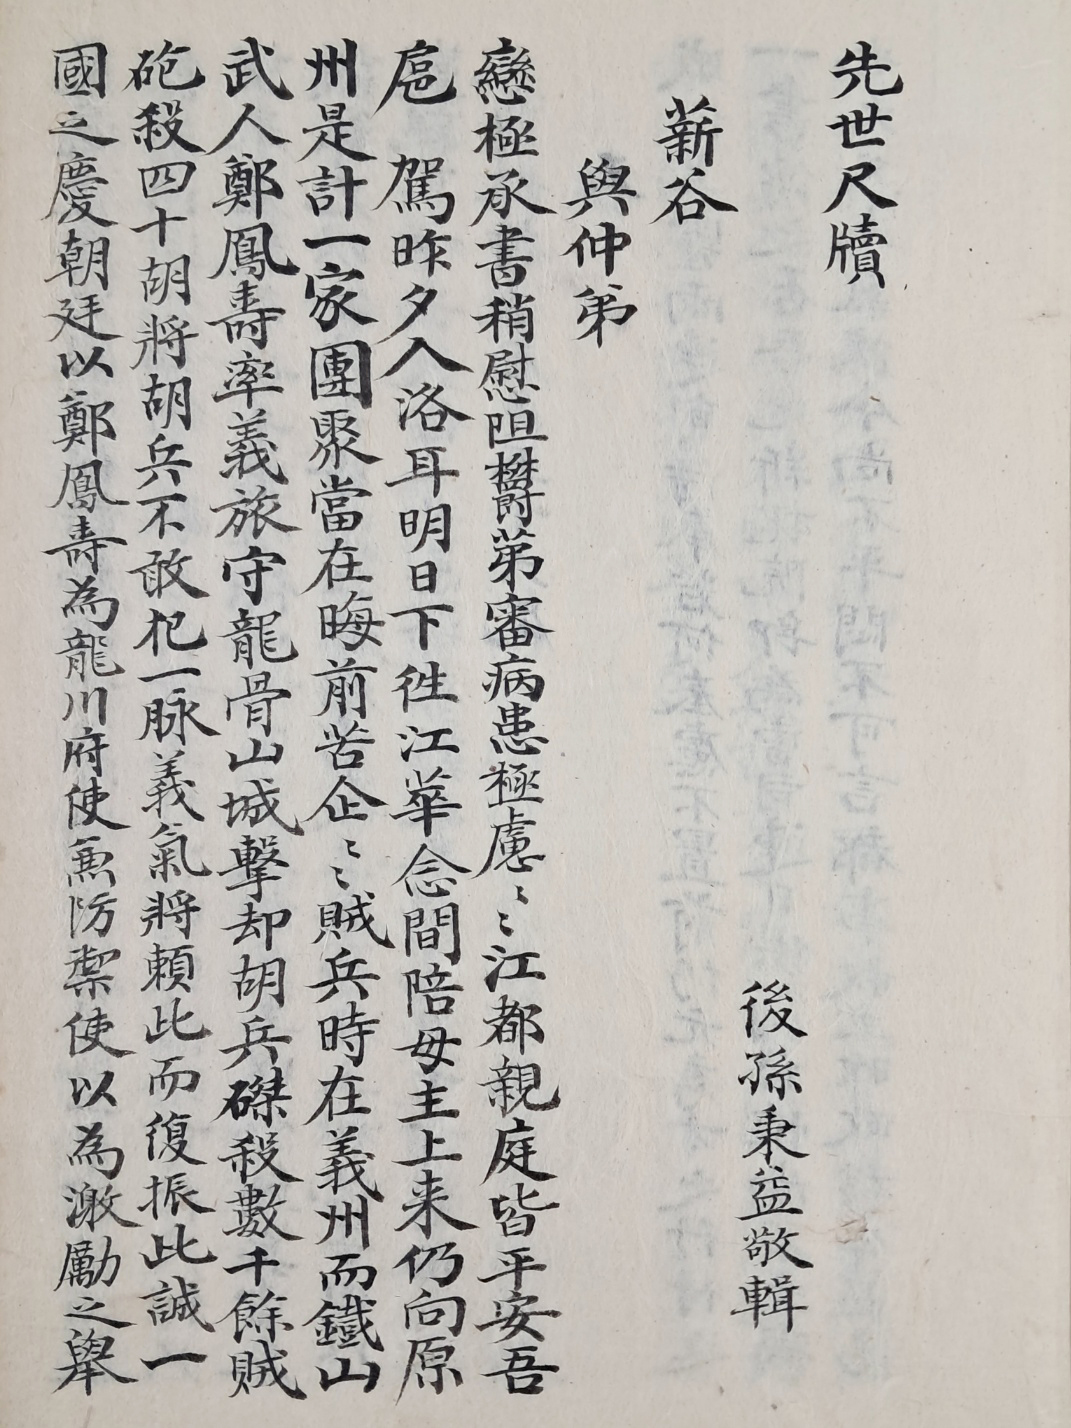 先世尺牘
後孫秉益敬輯
薪谷
與仲弟
戀極承書稍慰阻欝弟審病患極慮〻〻江都親庭皆平安吾
扈 駕昨夕入洛耳明日下徃江華念間陪母主上来仍向原
州是計一家團聚當在晦前苦企〻〻賊兵時在義州而鐵山
武人鄭鳳壽率義旅守龍骨山城擊却胡兵磔殺數千餘賊
砲殺四十胡將胡兵不敢犯一脉義氣將賴此而復振此誠一
國之慶朝廷以鄭鳳壽為龍川府使兼防禦使以為激勵之擧